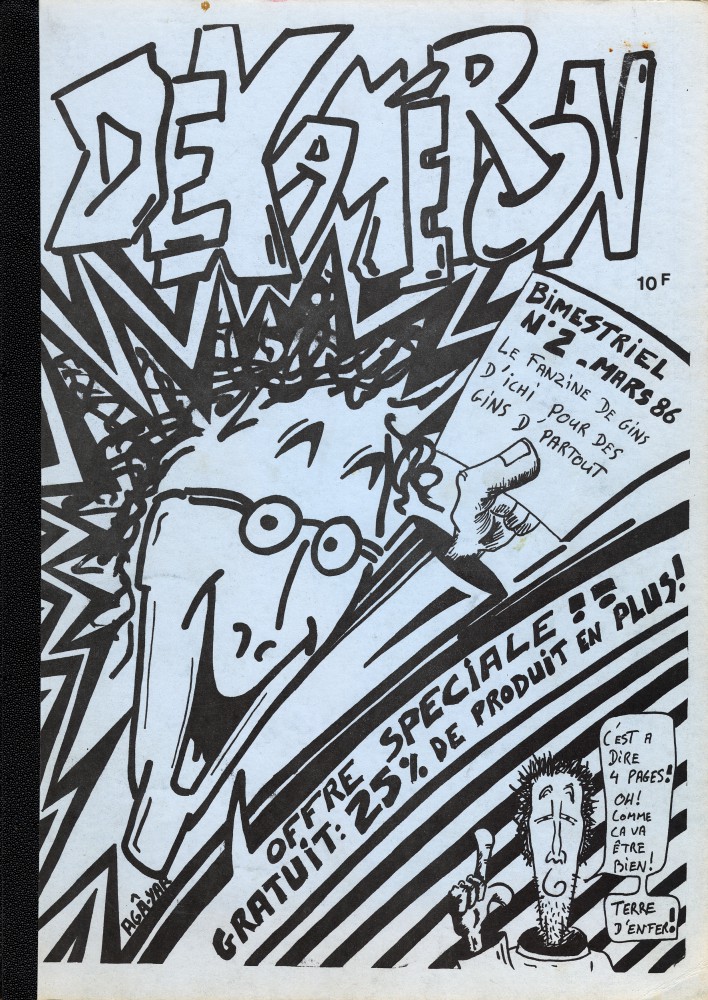 DEKAMÉRON
10 F
BIMESTRIEL
N°2 - MARS 86
LE FANZINE DE GINS
D'ICHI, POUR DES
GINS D'PARTOUT
OFFRE SPECIALE !!
GRATUIT: 25% DE PRODUIT EN PLUS!
C'EST A
DIRE
4 PAGES!
OH!
COMME
CA VA
ÊTRE
BIEN!
TERRE
D'ENFER!